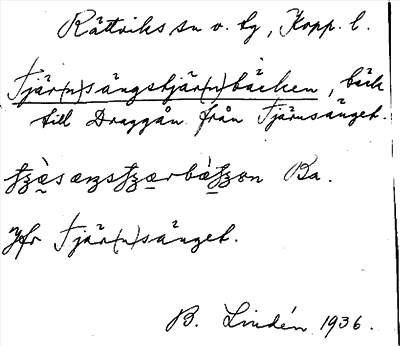 Rättviks sn o. tg, Kopp. l.
Tjär(n)sängstjär(n)bäcken, bäck
till Draggån från Tjärnsänget.
Ba.
Jfr Tjär(n)sänget.
B. Lindén 1936.